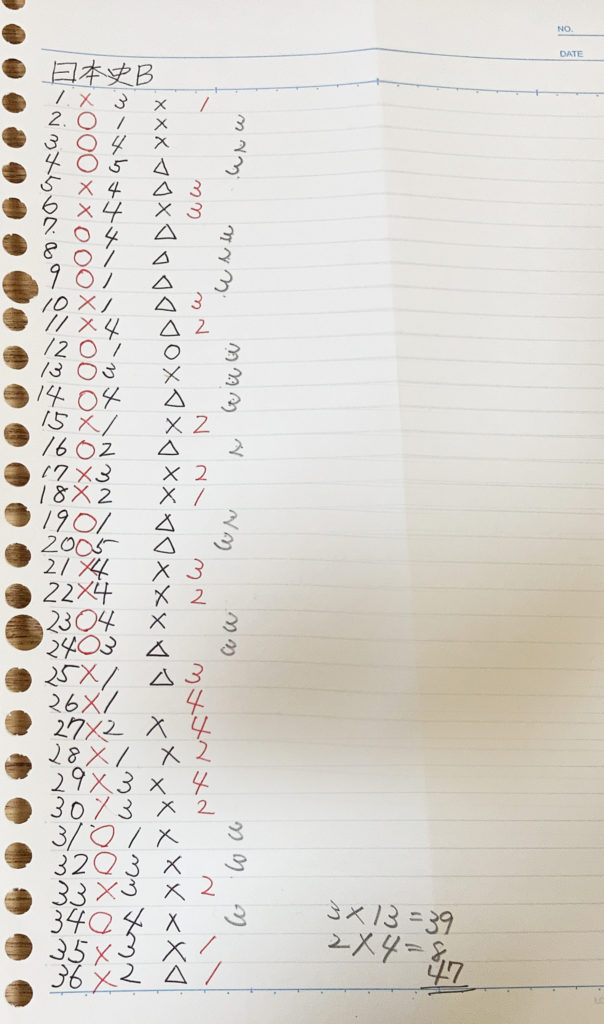 NO.
DATE
日本史B
1. × 3 × 1
2. ○ 1 × 3
3 ○ 4 × 2
4 ○ 5 △ 3
5 × 4 △ 3
6 × 4 × 3
7. ○ 4 △ 3
8 ○ 1 △ 2
9 ○ 1 △ 3
10 × 1 △ 3
11 × 4 △ 2
12 ○ 1 ○ 3
13 ○ 3 × 3
14 ○ 4 △ 3
15 × 1 × 2
16 ○ 2 △ 2
17 × 3 × 2
18 × 2 × 1
19 ○ 1 △ 2
20 ○ 5 △ 3
21 × 4 × 3
22 × 4 × 2
23 ○ 4 × 3
24 ○ 3 △ 3
25 × 1 △ 3
26 × 1 4
27 × 2 × 4
28 × 1 × 2
29 × 3 × 4
30 × 3 × 2
31 ○ 1 × 3
32 ○ 3 × 3
33 × 3 × 2
34 ○ 4 × 3
35 × 3 × 1
36 × 2 △ 1
3×13=39
2×4=8
47